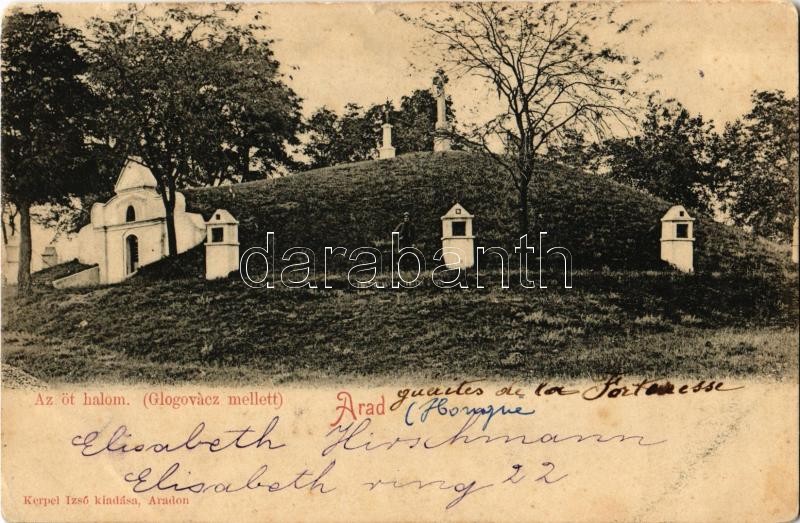 darabanth
Az öt halom. (Glogovàcz mellett)
Arad de la Forteresse
(Hongrie
Elisabeth Hirschmann
Elisabeth ring 22
Kerpel Izsó kiadása, Aradon